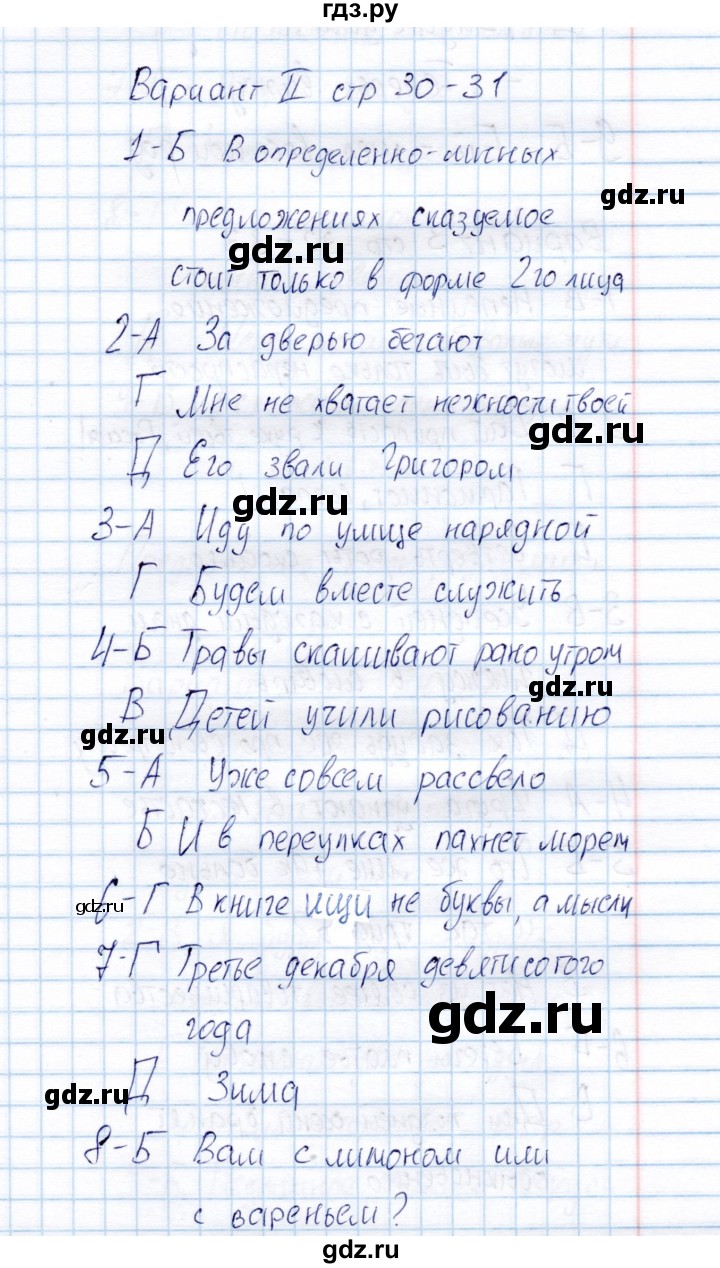 гдз.ру
Вариант II стр 30-31
1-Б В определенно-личных
gdz.ru
предложениях сказуемое
gdz.ru
стоит только в форме 2го лица
2-А За дверью бегают
Г Мне не хватает нежности твоей
gdz.ru
Д Его звали Григором
gdz.ru
3-А Иду по улице нарядной
Г Будем вместе служить
4-Б Травы скашивают рано утром
gdz.ru
В Детей учили рисованию
gdz.ru
5-А Уже совсем рассвело
Б И в переулках пахнет морем
gdz.ru
6-Г В книге ищи не буквы, а мысли
7-Г Третье декабря девятисотого
года
gdz.ru
Д Зима
gdz.ru
8-Б Вам с лимоном или
с вареньем?
gdz.ru